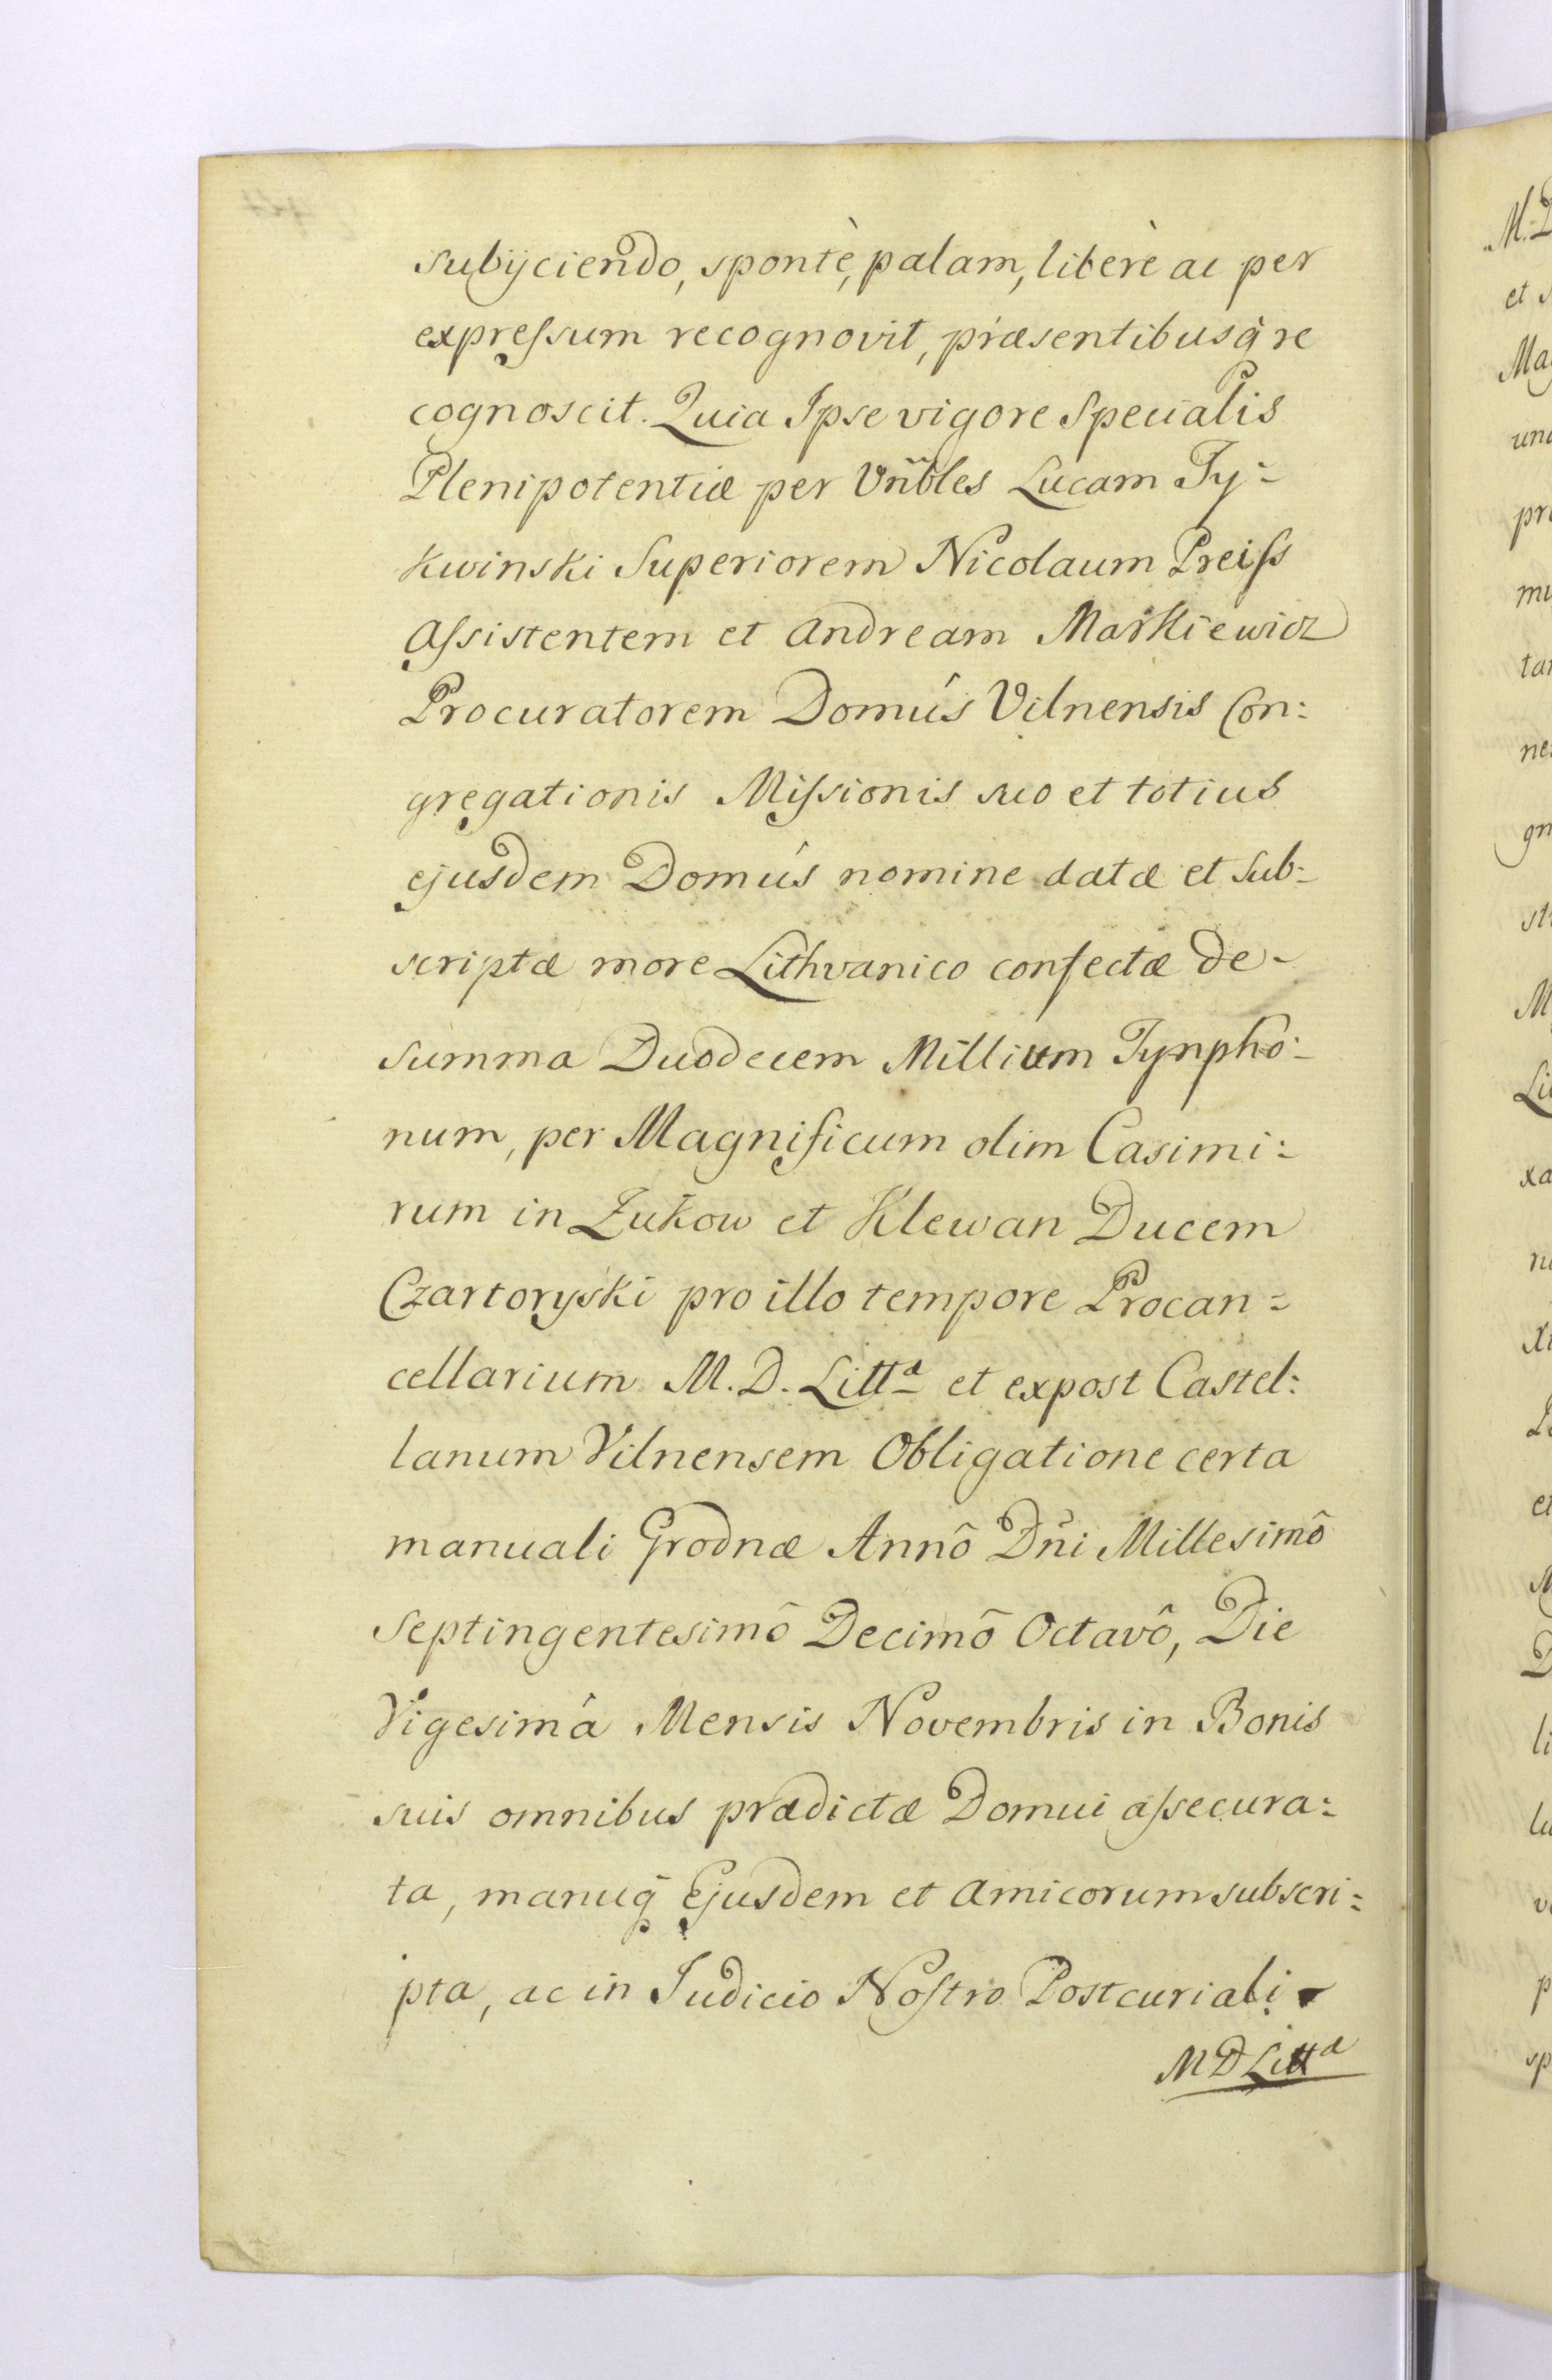 subijciendo, spontè, palam, liberè ac per
expreſsum recognovit, præsentibusq̀ re
cognoscit. Quia Ipse vigore Specialis
Plenipotentiæ per Vñbles Lucam Ty=
kwinski Superiorem Nicolaum Preiſs
Aſsistentem et Andream Markiewicz
Procuratorem Domûs Vilnensis Con:
gregationis Miſsionis suo et totius
ejusdem Domûs nomine datæ et Sub:
scriptæ more Lithvanico confectæ de-
summa Duodecem Millium Tynpho:
num, per Magnificum olim Casimi:
rum in Zukow et Klewan Ducem
Czartoryski pro illo tempore Procan=
cellarium M. D. Littᵃ et expost Castel:
lanum Vilnensem Obligatione certa
manuali Grodnæ Annô Dñi Millesimô
Septingentesimô Decimô Octavô, Die
Vigesimâ Mensis Novembris in Bonis
suis omnibus prædictæ Domui aſsecura:
ta, manuq̃ Ejusdem et Amicorum subscri:
pta, ac in Judicio Noſtro Postcuriali
M D Littᵃ